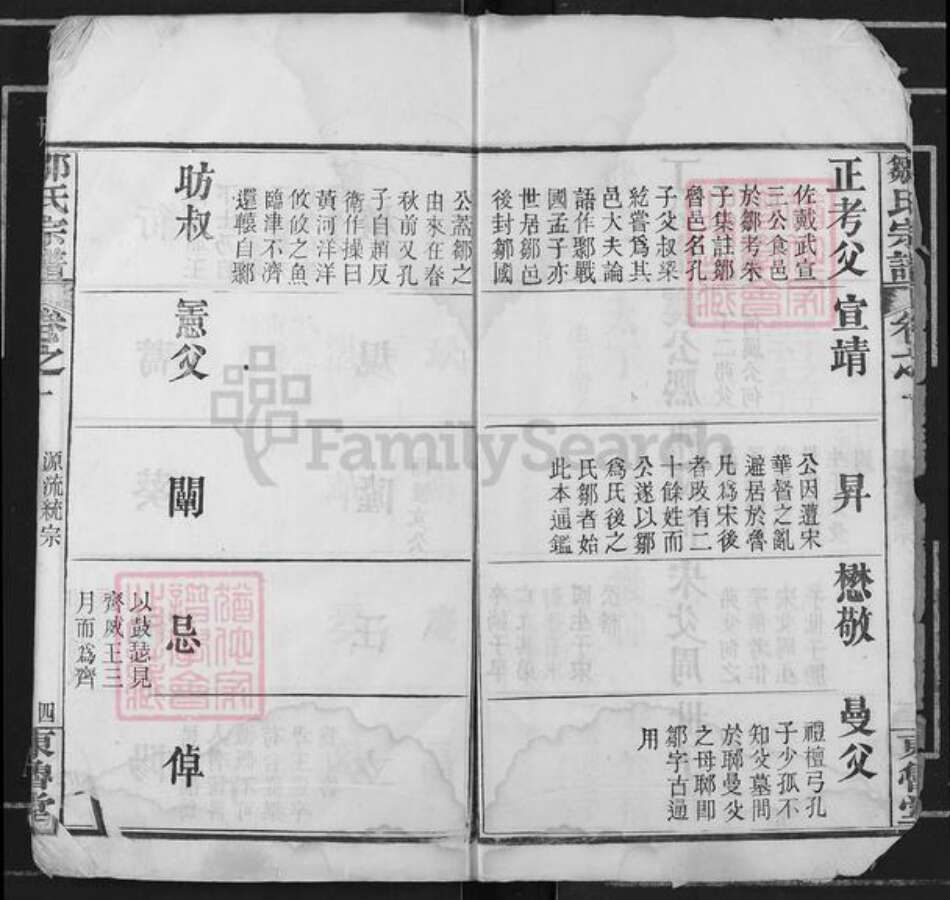 鄒氏宗譜
卷之一
東魯堂
正考父
佐戴武宣
三公食邑
於鄒考朱
子集註鄒
魯邑名孔
子父叔梁
紇嘗爲其
邑大夫論
語作鄹戰
國孟子亦
世居鄒邑
後封鄒國
宣靖
昇
公因遭宋
華督之亂
避居於魯
凡爲宋後
者改有二
十餘姓而
公遂以鄒
爲氏後之
氏鄒者始
此本通鑑
懋敬
曼父
禮檀弓孔
子少孤不
知父墓問
於郰曼父
之母郰卽
鄒字古通
用
公蓋鄒之
由來在春
秋前又孔
子自趙反
衛作操曰
黃河洋洋
攸攸之魚
臨津不濟
還轅自鄹
叔
憲父
闡
忌
以鼓瑟見
齊威王三
月而爲齊
倬
鄒氏宗譜
卷之一
源流統宗
四
東魯堂
FamilySearch